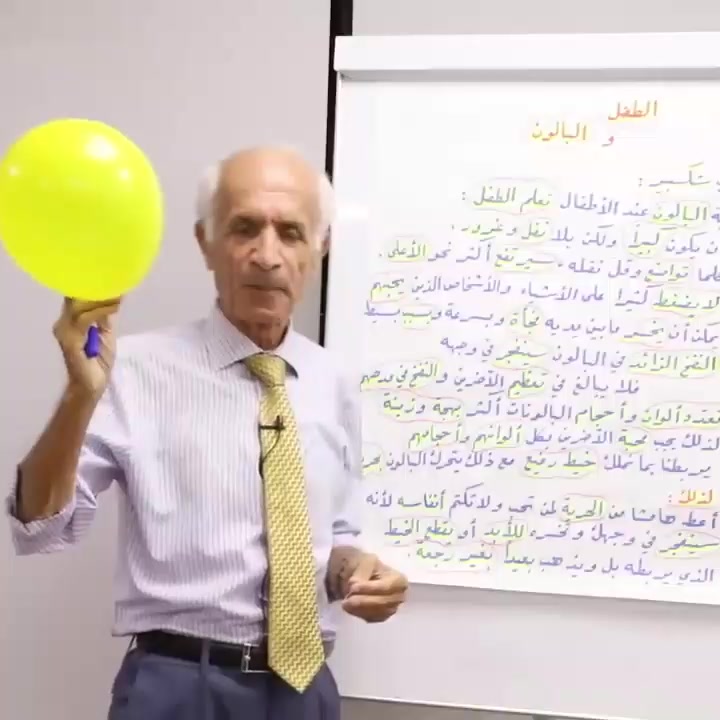 الطفل
و البالون
شكسبير :
البالون عند الأطفال تعلم الطفل :
يكون كبيراً ولكن بلا ثقل وغرور .
كلما تواضع وقل ثقله سيرتفع أكثر نحو الأعلى .
لا يضغط كثيراً على الأشياء والأشخاص الذين يحبهم
يمكن أن يخسر ما بين يديه فجأة وبسرعة وبسبب بسيط
النفخ الزائد في البالون سينفجر في وجهه
فلا يبالغ في تعظيم الآخرين والنفخ في
ألوان وأحجام البالونات أكثر بهجة وزينة
لذلك يجب محبة الآخرين بكل ألوانهم وأحجامهم
يربطنا بما نملك خيط رفيع مع ذلك يتحرك البالون
لذلك :
أعط هامشاً من الحرية لمن تحب ولا تكتم أنفاسه لأنه
سينفجر في وجهك وتخسره للأبد أو يقطع الخيط
الذي يربطه بك ويذهب بعيداً بغير رجعة